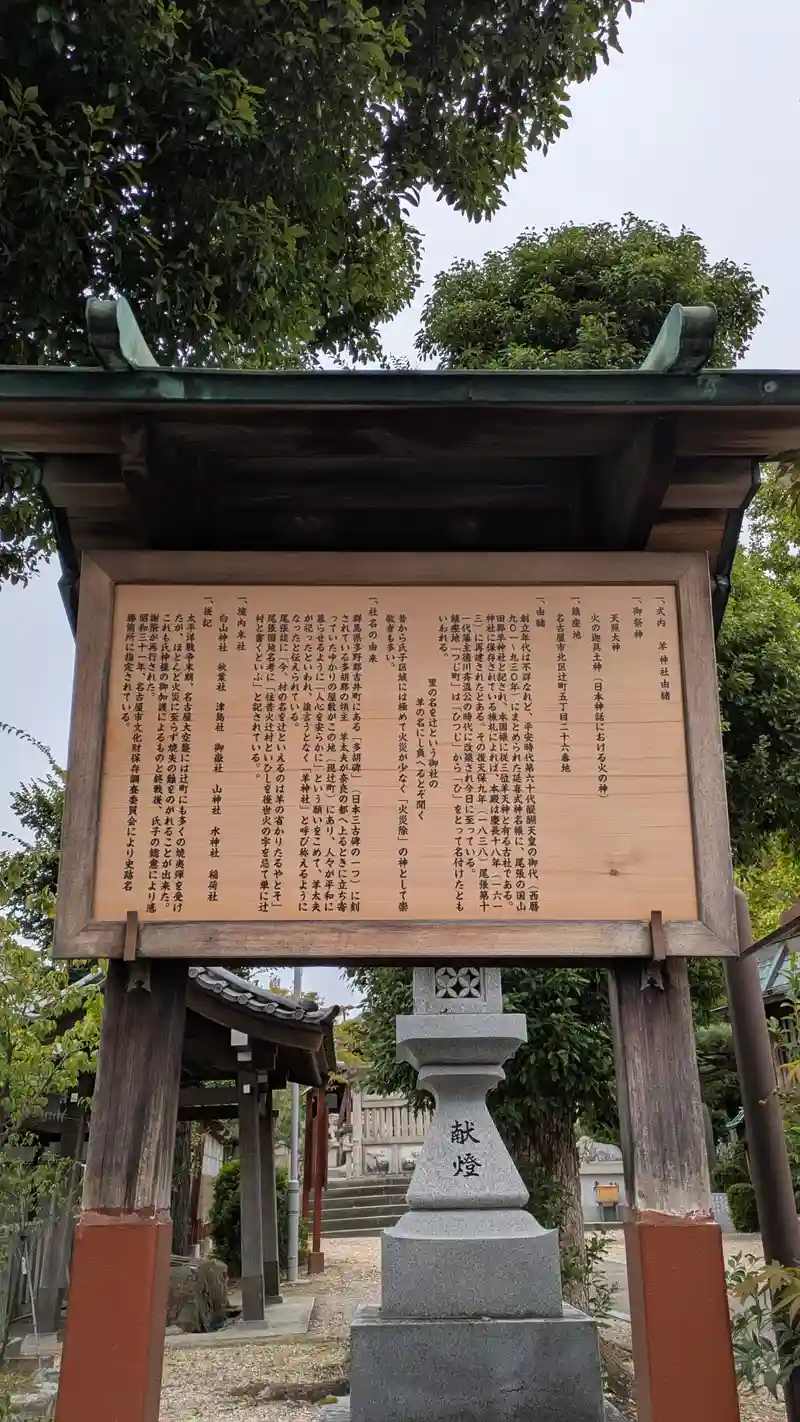 一、式内 羊神社由緒
一、御祭神
天照大神
火の迦具土神(日本神話における火の神)
一、鎮座地
名古屋市北区辻町五丁目二十六番地
一、由緒
創立年代は不詳なれど、平安時代第六十代醍醐天皇の御代(西暦
九〇一~九三〇年)にまとめられた延喜式神名帳に、尾張の国山
田郡羊神社と記され、本国帳に従三位羊天神と有る古社である。
神社に保存されている棟札によれば、本殿は慶長十八年(一六一
三)に再建されたとある。その後天保九年(一八三八)尾張第十
一代藩主徳川斉温公の時代に改築され今日に至っている。
鎮座地「つじ町」は「ひつじ」から「ひ」をとって名付けたとも
いわれる。
里の名を辻という御社の
羊の名にし負へるとぞ聞く
昔から氏子区域には極めて火災が少なく「火災除」の神として崇
敬者も多い。
一、社名の由来
群馬県多野郡吉井町にある「多胡碑」(日本三古碑の一つ)に刻
されている多胡郡の領主 羊太夫が奈良の都へ上るときに立ち寄
っていたゆかりの屋敷がこの地(現辻町)にあり、人々が平和に
暮らせるように「人心を安らかに」という願いをこめて、羊太夫
が祀ったといわれ、誰言うとなく「羊神社」と呼び称えるように
なったと伝えられている。
尾張誌に「今、村の名を辻といえるのは羊の省かりたるやとぞ」
尾張国地名考に「往昔火辻村といひしを後世火の字を忌て単に辻
村と書くといふ」と記されている。
一、境内末社
白山神社 秋葉社 津島社 御嶽社 山神社 水神社 稲荷社
一、後記
太平洋戦争末期、名古屋大空襲には辻町にも多くの焼夷弾を受け
たが、ほとんど火災に至らず焼失の難をのがれることが出来た。
これも氏神様の御加護によるものと終戦後、氏子の総意により感
謝祭が再行された。
昭和三十一年、名古屋市文化財保存調査委員会により史跡名
勝箇所に指定されている。
献燈